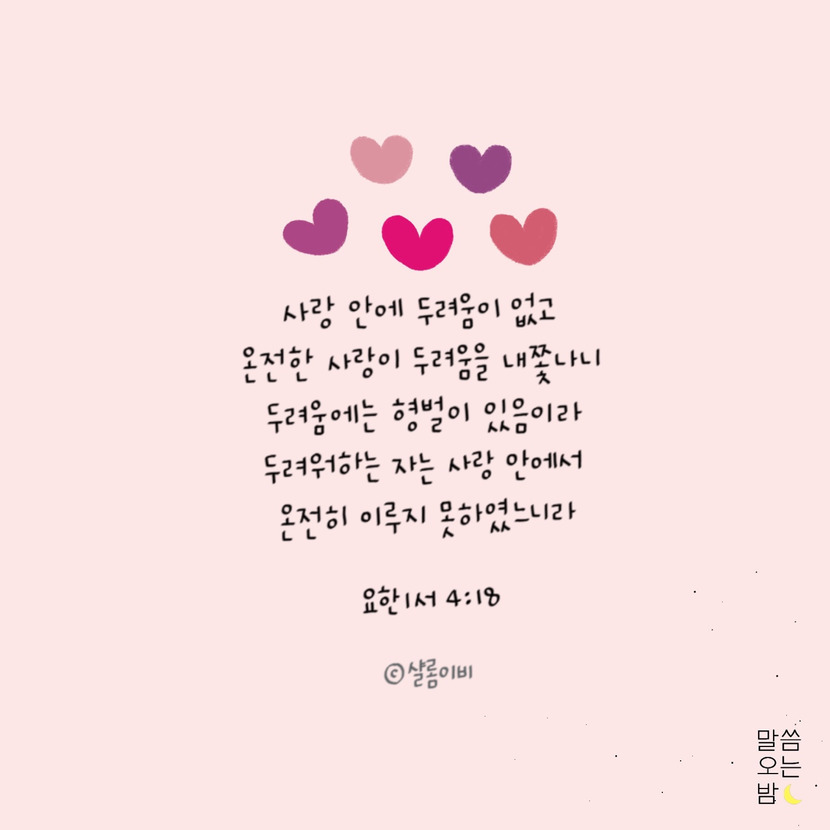 사랑 안에 두려움이 없고
온전한 사랑이 두려움을 내쫓나니
두려움에는 형벌이 있음이라
두려워하는 자는 사랑 안에서
온전히 이루지 못하였느니라
요한1서 4:18
©샬롬이비
말씀
오는
밤